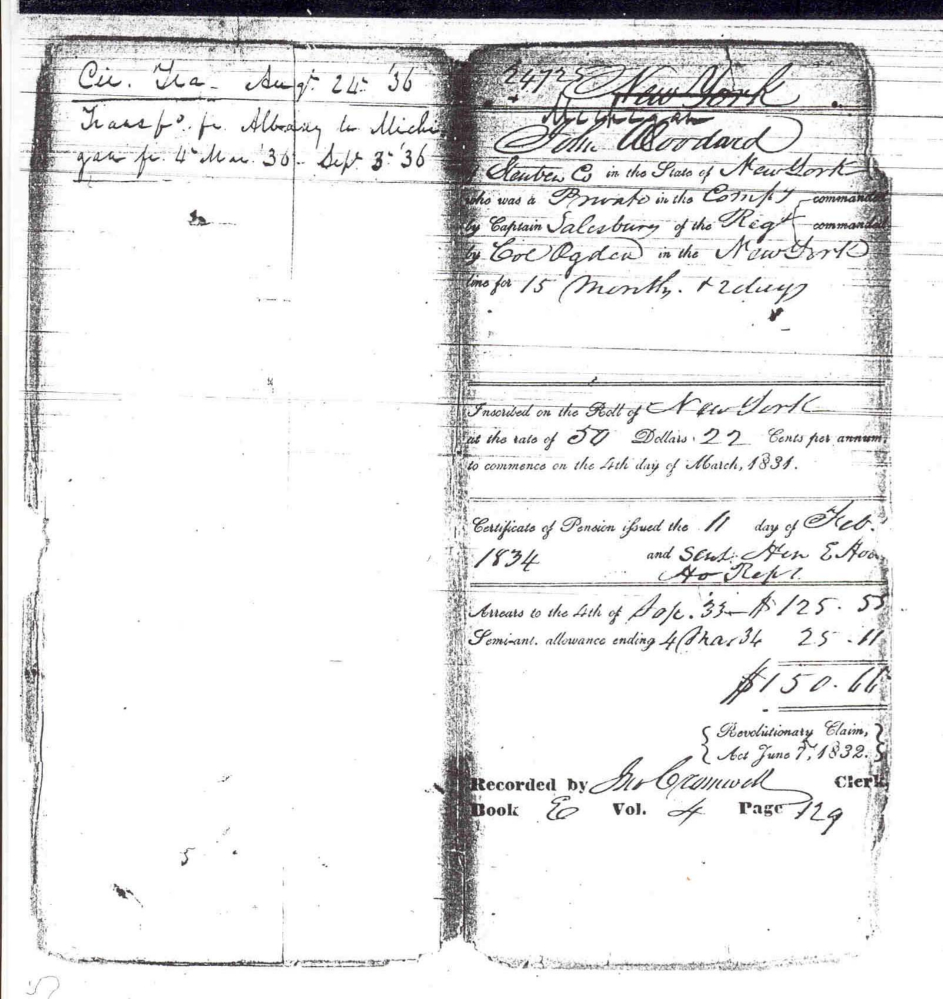 Cir. Tra - Aug. 24. '36
Transf'd. fr. Albany to Michi
gan fr. 4 Mar. '36 - Sept 3. '36
5
24725
New York
Michigan
John Woodard
of Steuben Co in the State of New York
who was a Private in the Compy commanded
by Captain Salesbury of the Regt commanded
by Col Ogden in the New York
line for 15 months. + 2 days
Inscribed on the Roll of New York
at the rate of 50 Dollars 22 Cents per annum,
to commence on the 4th day of March, 1831.
Certificate of Pension issued the 11 day of Feb.
1834 and sent Hon E
Ho Reps.
Arrears to the 4th of Sep. '33 - $125.55
Semi-ant. allowance ending 4 Mar 34 25.11
$150.66
Revolutionary Claim,
Act June 7, 1832.
Recorded by Jno Cromwell Clerk,
Book E Vol. 4 Page 129